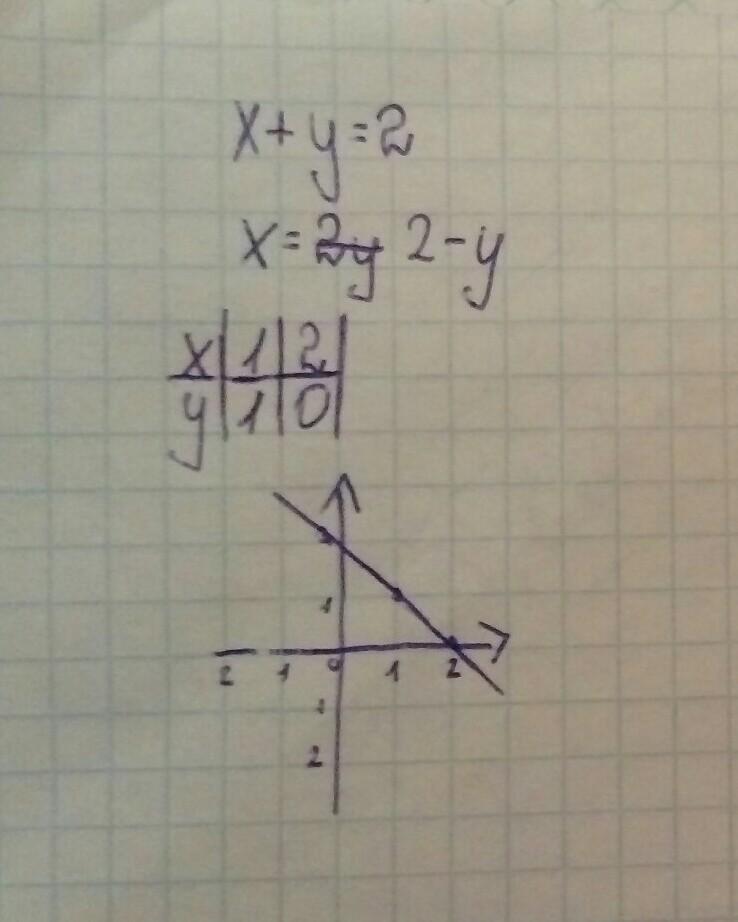 x+y=2
x=2y 2-y
x|1|2|
y|1|0|
2
1
2 1 0 1 2
1
2